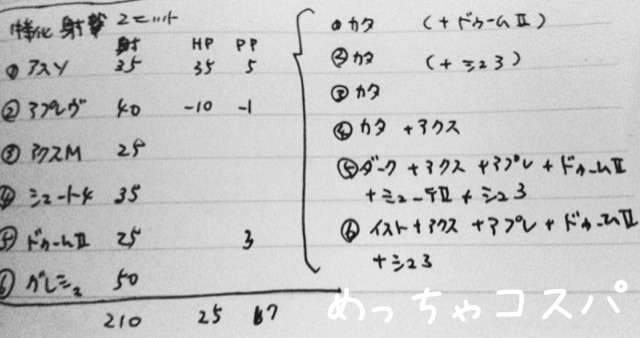 特化 射撃 ユニット
射 HP PP
①アスソ 35 35 5
②アプレヴ 40 -10 -1
③アクスM 25
④シュート4 35
⑤ドゥームⅡ 25 3
⑥グレシュ 50
210 25 7
①カタ (+ドゥームⅡ)
②カタ (+シュ3)
③カタ
④カタ +アクス
⑤ダーク+アクス+アプレ+ドゥームⅡ
+ミューテⅡ+シュ3
⑥イスト+アクス+アプレ+ドゥームⅡ
+シュ3
めっちゃコスパ